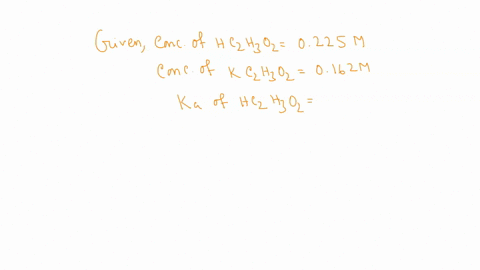 Given, Conc. of HC2H3O2 = 0.225 M
Conc. of KC2H3O2 = 0.162M
Ka of HC2H3O2 =